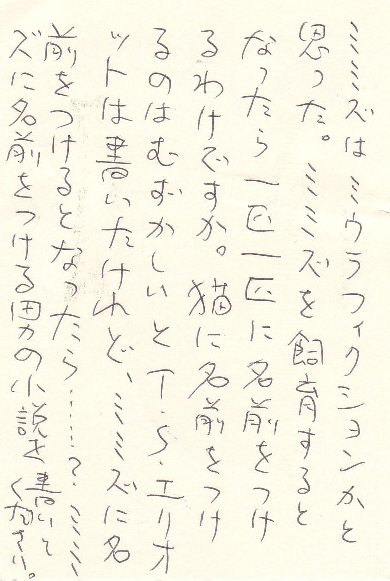 ミミズはミウラフィクションかと
思った。ミミズを飼育すると
なったら一匹一匹に名前をつけ
るわけですか。猫に名前をつけ
るのはむずかしいとT.S.エリオ
ットは書いたけれど、ミミズに名
前をつけるとなったら……？ミミ
ズに名前をつける男の小説を書いて
ください。